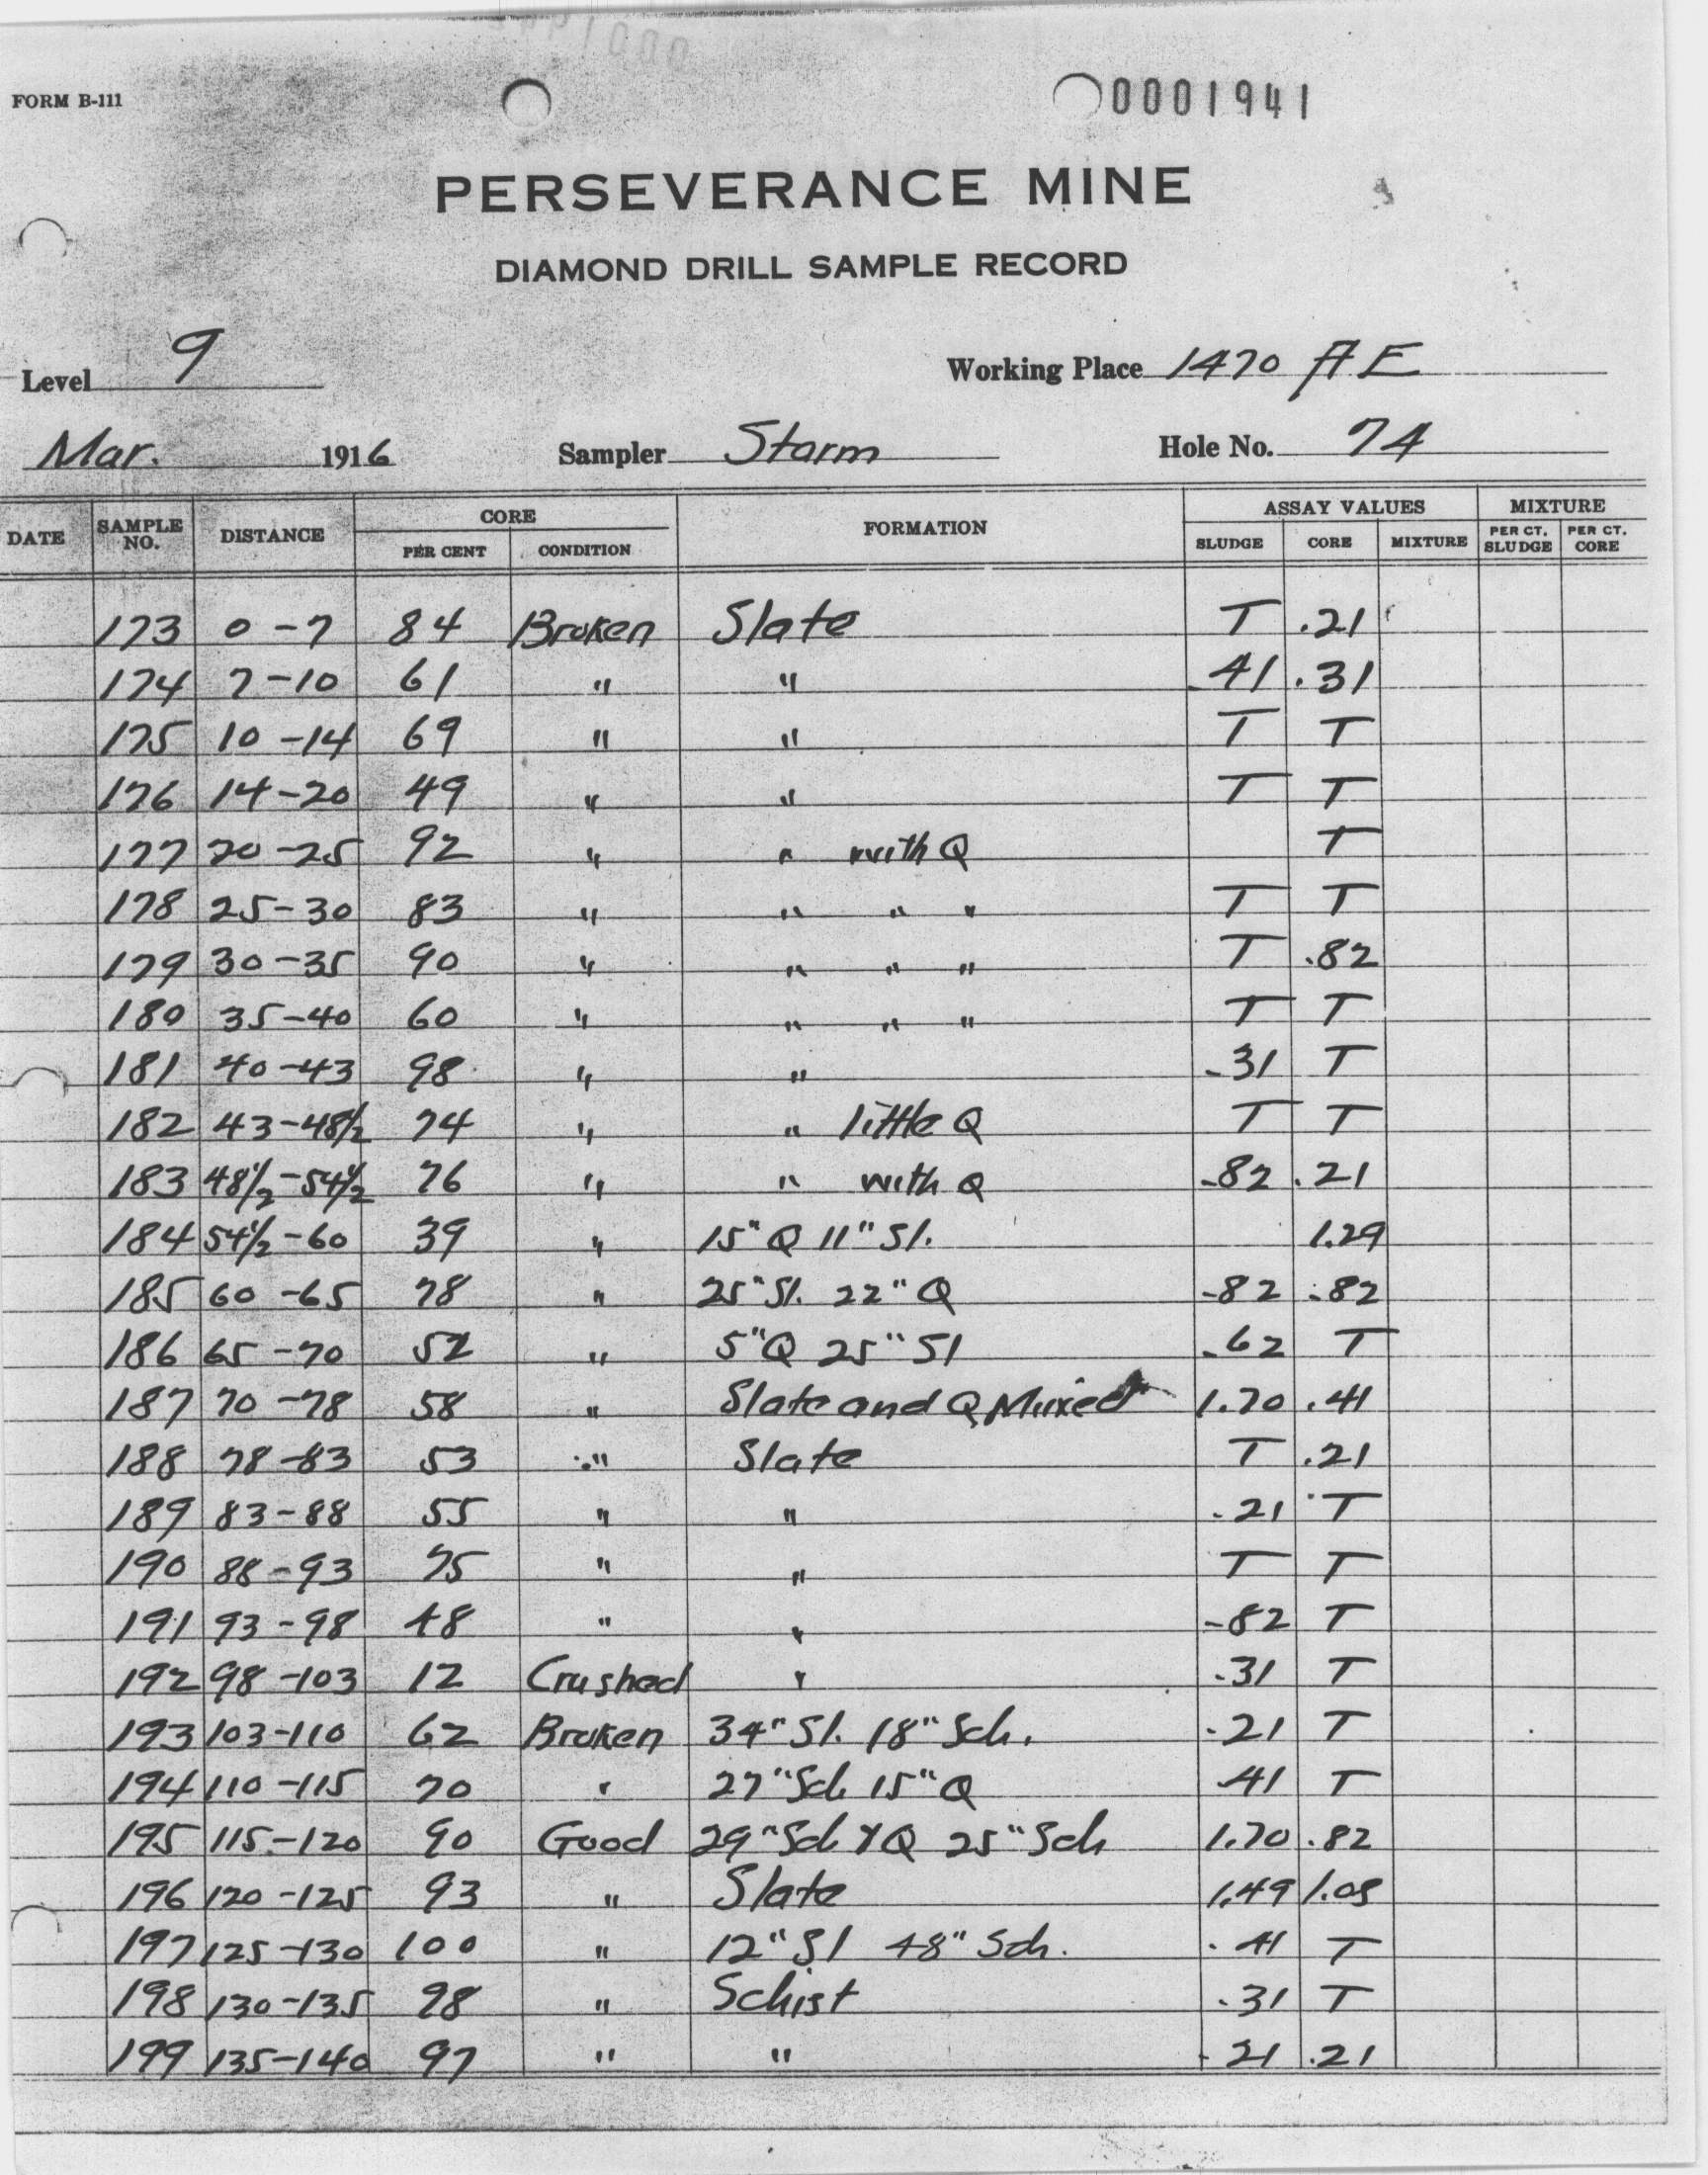 FORM B-111
0001941
PERSEVERANCE MINE
DIAMOND DRILL SAMPLE RECORD
Level 9 Working Place 1470 A E
Mar. 1916 Sampler Storm Hole No. 74
DATE SAMPLE NO. DISTANCE CORE PER CENT CONDITION FORMATION ASSAY VALUES SLUDGE CORE MIXTURE MIXTURE PER CT. SLUDGE PER CT. CORE
173 0-7 84 Broken Slate T .21
174 7-10 61 " " .41 .31
175 10-14 69 " " T T
176 14-20 49 " " T T
177 20-25 92 " " with Q T
178 25-30 83 " " " " T T
179 30-35 90 " " " " T .82
180 35-40 60 " " " " T T
181 40-43 98 " " .31 T
182 43-48½ 74 " " little Q T T
183 48½-54½ 76 " " with Q .82 .21
184 54½-60 39 " 15" Q 11" Sl. 1.29
185 60-65 78 " 25" Sl. 22" Q .82 .82
186 65-70 52 " 5" Q 25" Sl .62 T
187 70-78 58 " Slate and Q Mixed 1.70 .41
188 78-83 53 " Slate T .21
189 83-88 55 " " .21 T
190 88-93 75 " " T T
191 93-98 48 " " .82 T
192 98-103 12 Crushed " .31 T
193 103-110 62 Broken 34" Sl. 18" Sch. .21 T
194 110-115 70 " 27" Sch 15" Q .41 T
195 115-120 90 Good 29" Sch Q 25" Sch 1.70 .82
196 120-125 93 " Slate 1.49 1.08
197 125-130 100 " 12" Sl 48" Sch. .41 T
198 130-135 98 " Schist .31 T
199 135-140 97 " " .21 .21